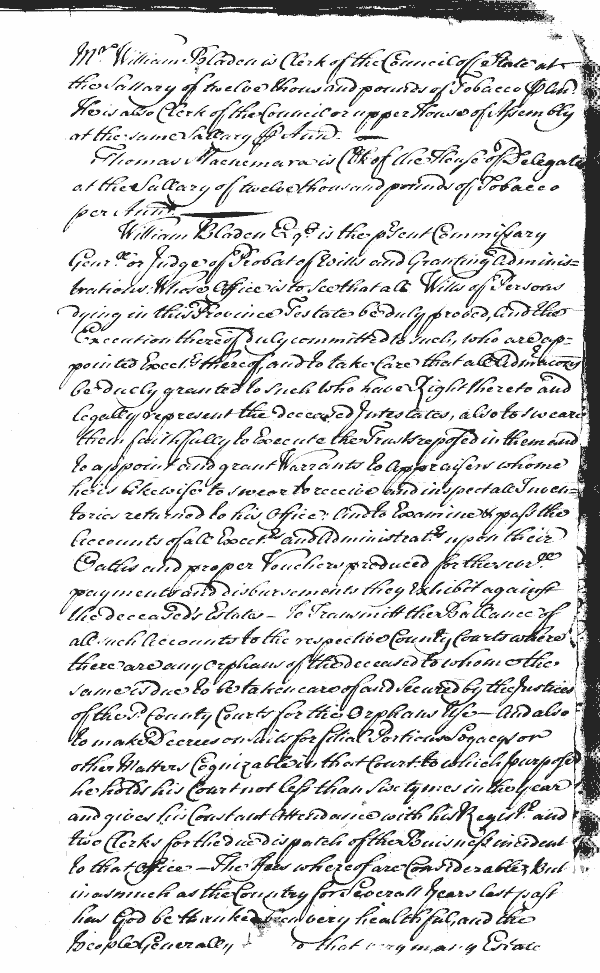 Mr. William Bladen is Clerk of the Council of State at
the Sallary of twelve thousand pounds of Tobacco
He is also Clerk of the Council or upper House of Assembly
at the same Sallary Ann.
Thomas Macnemara is Clk of the House of Delegates
at the Sallary of twelve thousand pounds of Tobacco
per Ann.
William Bladen Esqr. is the psent Commissary
Genrll. or Judge of Probat of Wills and Granting Adminis=
trations. Whose Office is to see that all Wills of Persons
dying in this Province Testate be duly proved, and the
Execution thereof duly committed to such, who are ap=
pointed Execrs. thereof, and to take Care that all
be duely granted to such who have Right thereto and
legally represent the deceased Intestates, also to swear
them faithfully to Execute the Trusts reposed in them and
to appoint and grant Warrants to Appraisers whome
he is likewise to swear to receive and inspect all Inven=
tories returned to his Office. And to Examine & pass the
Accounts of all Execrs. and Administrats. upon their
Oaths and proper Vouchers produced for the
payments and disbursements they Exhibit against
the deceased's Estates - To Transmitt the Ballance of
all such Accounts to the respective County Courts where
there are any Orphans of the deceased to whom the
same is due to be taken care of and secured by the Justices
of the sd. County Courts for the Orphans Use - And also
to make Decrees on suits for filial Portions Legacys or
other Matters Cognizable in that Court to which purpose
he holds his Court not less than Six tymes in the year
and gives his Constant Attendance with his Registr. and
two Clerks for the due dispatch of the Buisness incident
to that Office - The Fees whereof are Considerable; But
in as much as the Country for Severall Years last past
has God be thanked been very healthful, and the
People Generally that very many Estate